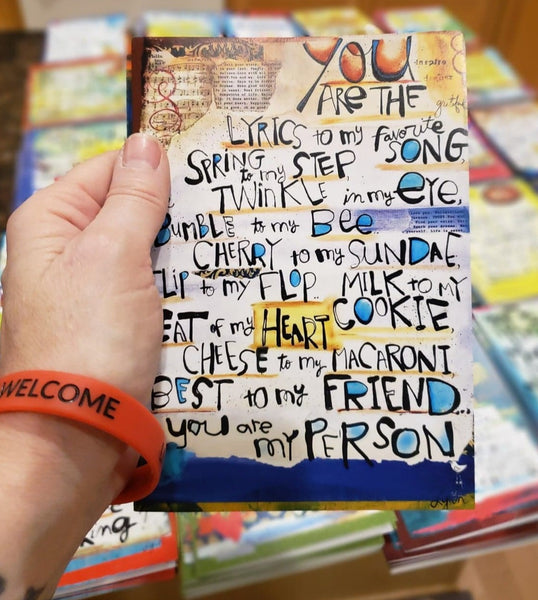 YOU
ARE THE
LYRICS to my favorite
SONG,
SPRING to my STEP
TWINKLE in my eYe,
BUMBLE to my Bee.
CHERRY to my SUNDAE,
FLIP to my FLOP.. MILK to MY
COOKIE,
BEAT of my HEART
CHEESE to my MACARONI
BEST to my FRIEND...
you are
my PERSON
WELCOME